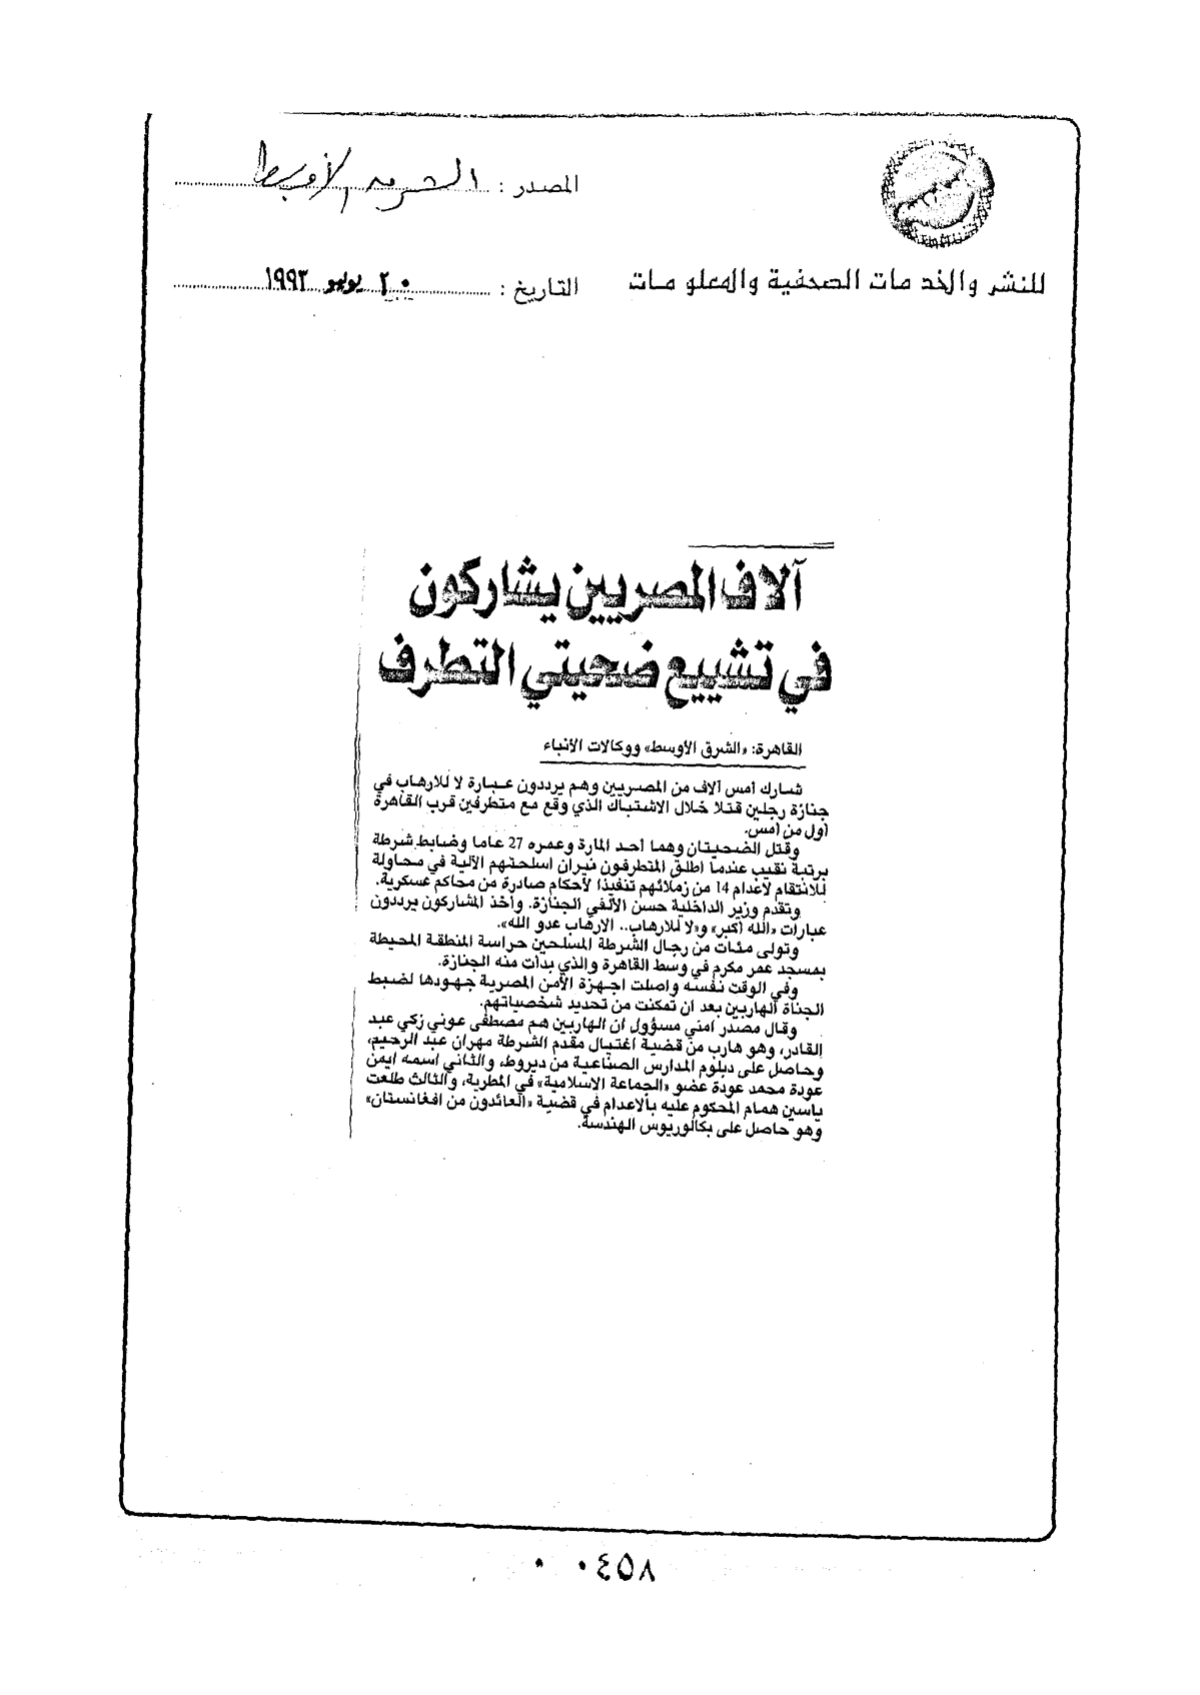 المصدر : الشرق الأوسط
للنشر والخدمات الصحفية والمعلومات
التاريخ : ٢٠ يوليو ١٩٩٣
آلاف المصريين يشاركون
في تشييع ضحيتي التطرف
القاهرة: «الشرق الأوسط» ووكالات الأنباء
شارك أمس آلاف من المصريين وهم يرددون عبارة لا للارهاب في
جنازة رجلين قتلا خلال الاشتباك الذي وقع مع متطرفين قرب القاهرة
أول من أمس.
وقتل الضحيتان وهما أحد المارة وعمره 27 عاما وضابط شرطة
برتبة نقيب عندما اطلق المتطرفون نيران اسلحتهم الآلية في محاولة
للانتقام لاعدام 14 من زملائهم تنفيذا لأحكام صادرة من محاكم عسكرية.
وتقدم وزير الداخلية حسن الألفي الجنازة. وأخذ المشاركون يرددون
عبارات «الله أكبر» و«لا للارهاب.. الارهاب عدو الله».
وتولى مئات من رجال الشرطة المسلحين حراسة المنطقة المحيطة
بمسجد عمر مكرم في وسط القاهرة والذي بدأت منه الجنازة.
وفي الوقت نفسه واصلت اجهزة الأمن المصرية جهودها لضبط
الجناة الهاربين بعد ان تمكنت من تحديد شخصياتهم.
وقال مصدر امني مسؤول ان الهاربين هم مصطفى عوني زكي عبد
القادر، وهو هارب من قضية اغتيال مقدم الشرطة مهران عبد الرحيم،
وحاصل على دبلوم المدارس الصناعية من ديروط، والثاني اسمه ايمن
عودة محمد عودة عضو «الجماعة الاسلامية» في المطرية، والثالث طلعت
ياسين همام المحكوم عليه بالاعدام في قضية «العائدون من افغانستان»
وهو حاصل على بكالوريوس الهندسة.
٠ ٠٤٥٨